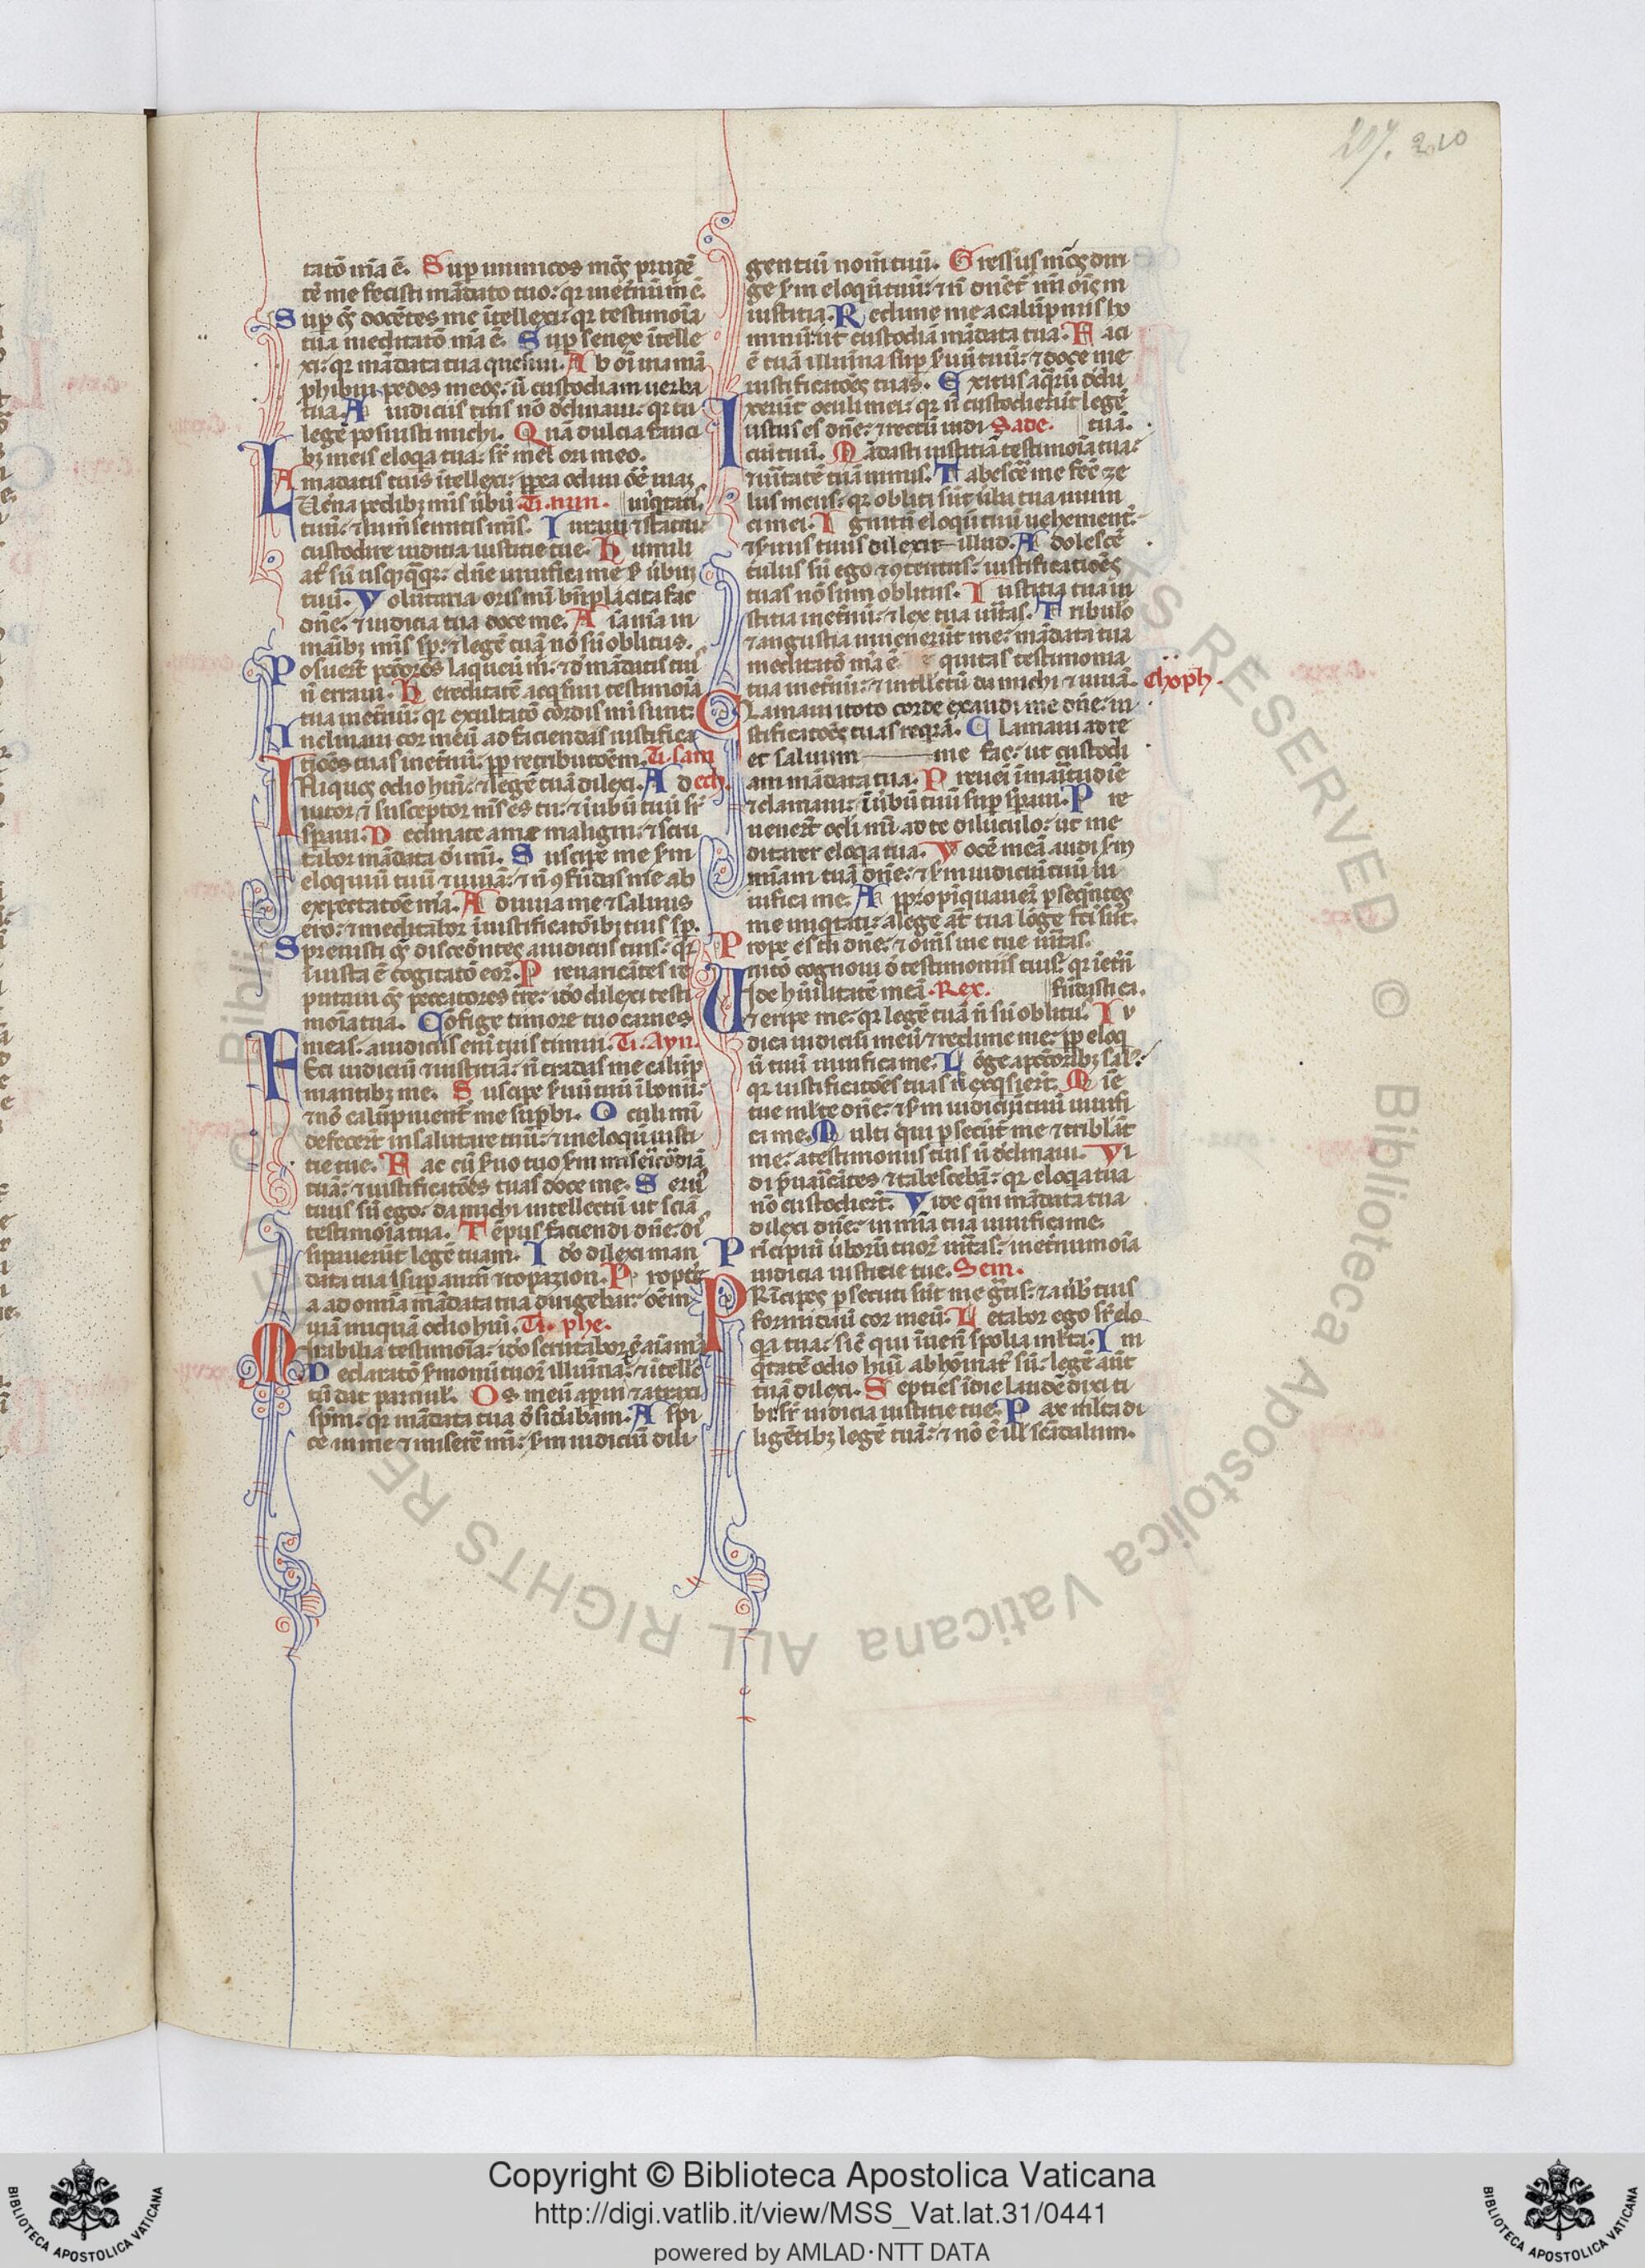 207. 210
tatō m̄a ē. Sup inimicos mēs prudē
tē me fecisti mādato tuo: qr inet̄num m̄ ē.
Sup oēs docētes me ītellexi: qr testimōia
tua meditatō m̄a ē. Sup senes ītelle
xi: qr mādata tua quesiui. Ab oī uia mā
phibui pedes meos: ut custodiam uerba
tua. A iudiciis tuis nō declinaui: qr tu
legē posuisti michi. Quā dulcia fauci
bȝ meis eloqa tua: sr̄ mel ori meo.
A mādatis tuis ītellexi: ppea odiui oēm uiaȝ
Lucerna pedibȝ m̄is ūbū Ti. nun. iniqtatis
tuū: ⁊ lum̄ semitis m̄is. Iuraui ⁊ statui
custodire iudicia iustitie tue. Humili
at' sū usqȝqqȝ: dn̄e uiuifica me s̄ ūbuȝ
tuū. Voluntaria oris mī bn̄placita fac
dn̄e: ⁊ iudicia tua doce me. Aīa m̄a in
manibȝ m̄is sp̄: ⁊ legē tuā nō sū oblitus.
Posuer̄t pctōres laqueū m̄: ⁊ d' mādatis tuis
n̄ erraui. Hereditatē acqsiui testimōia
tua inet̄nū: qr exultatō cordis mī sunt:
Inclinaui cor meū ad faciendas iustifica
tiōes tuas inet̄nū: pp retributōem. Ti. sam
Iniquos odio hui: ⁊ legē tuā dilexi. Ad ech.
iutor ⁊ susceptor m̄s es tu: ⁊ ī ūbū tuū sr̄
sp̄aui. Declinate a me maligni: ⁊ scru
tabor mādata dī mī. Suscipe me s̄m
eloquiū tuū ⁊ uiuā: ⁊ n̄ ꝯfūdas me ab
expectatōe m̄a. Adiuua me ⁊ saluus
ero: ⁊ meditabor ī iustificatōibȝ tuis sp̄.
Spreuisti oēs discedētes a iudiciis tuis: qr
iniusta ē cogitatō eoꝝ. Preuaricātes re
putaui oēs peccatores tr̄e: ido dilexi testi
mōia tua. Cōfige timore tuo carnes
meas: a iudiciis enī tuis timui. Ti. Ayn.
Feci iudiciū ⁊ iustitiā: n̄ tradas me calūp
niantibȝ me. Suscipe s̄uū tuū ī bonū:
⁊ nō calūpnient̄ me supbi. Oculi mī
defecer̄t in salutare tuū: ⁊ in eloqū iusti
tie tue. Fac cū s̄uo tuo s̄m misericordiā
tuā: ⁊ iustificatōes tuas doce me. Seru'
tuus sū ego: da michi intellectū ut sciā
testimōia tua. Tēpus faciendi dn̄e: di
sipauerūt legē tuam. Ido dilexi man
data tua: sup aurū ⁊ topazion. Propte
a ad omia mādata tua dirigebar: oēm
uiā iniquā odio hui. Ti. phe.
Mirabilia testimōia: ido scrutabor ea aīa m̄a
Declaratō s̄monū tuoꝝ illuīnat: ⁊ ītelle
tū dat paruul'. Os meū apui ⁊ atraxi
sp̄m: qr mādata tua desidabam. Aspi
ce in me ⁊ miserē mī: s̄m iudiciū dili
gentiū nom̄ tuū. Gressus mēs diri
ge s̄m eloqū tuū: ⁊ n̄ dnēt̄ mī ois
iniustitia. Redime me a calūpniis ho
minū: ut custodiā mādata tua. Faci
ē tuā illumīna sup s̄uū tuū: ⁊ doce me
iustificatōes tuas. Exitus aqrū dedu
xerūt oculi mei: qr n̄ custodierūt legē
Iustus es dn̄e: ⁊ rectū iudi Sade. tuā.
ciū tuū. Mādasti iustitiā testimōia tua:
⁊ uītatē tuā nimis. Tabescē me fec̄ ze
lus meus: qr obliti sūt ūba tua inimi
ci mei. Ignitū eloqū tuū uehement̄:
⁊ s̄uus tuus dilexit illud. Adolescē
tulus sū ego ⁊ ꝯtentus: iustificatiōes
tuas nō sum oblitus. Iustitia tua iu
stitia inet̄nū: ⁊ lex tua uītas. Tribulō
⁊ angustia inuenerūt me: mādata tua
meditatō m̄a ē. Equitas testimonia
tua inet̄nū: ⁊ intllectū da michi ⁊ uiuā. Choph.
Clamaui ī toto corde exaudi me dn̄e: iu
stificatōes tuas reqrā. Clamaui ad te
et saluum me fac: ut custodi
am mādata tua. Preueī ī maturitudīe
⁊ clamaui: ī ūba tuū sup sp̄aui. Pre
uener̄t ocli mī ad te diluculo: ut me
ditarer eloqa tua. Vocē meā audi s̄m
mīam tuā dn̄e: ⁊ s̄m iudiciū tuū ui
uifica me. Appropīquauer̄ psequētes
me iniqtati: a lege at̄ tua lōge fcī sūt.
Prope es tu dn̄e: ⁊ om̄s uie tue uītas.
Initō cognoui d' testimoniis tuis: qr ī et̄n
Vide hūilitatē meā Rex. fūdasti ea.
⁊ eripe me: qr legē tuā n̄ sū oblitus. Iu
dica iudiciū meū ⁊ redime me: pp eloq
ū tuū uiuifica me. Lōge a pctōribȝ sal':
qr iustificatōes tuas n̄ exqsier̄t. Mīe
tue mlte dn̄e: ⁊ s̄m iudiciū tuū uiuifi
ca me. Multi qui psecūt' me ⁊ triblāt
me: a testimoniis tuis n̄ declinaui. Vi
di p̄uaricātes ⁊ tabescebā: qr eloqa tua
nō custodier̄t. Vide qm̄ mādata tua
dilexi dn̄e: in mīa tua uiuifica me.
Prīcipiū ūborū tuoꝝ uītas: inet̄num oīa
iudicia iustitie tue. Sem.
Prīcipes psecuti sūt me gt̄is: ⁊ a ūb' tuis
formidauit cor meū. Letabor ego sr̄ elo
qa tua: sic̄ qui īueīt spolia mlta. Ini
qtatē odio hui ⁊ abhoīnat' sū: legē aūt
tuā dilexi. Septies ī die laudē dixi ti
bi: sr̄ iudicia iustitie tue. Pax mlta di
ligētibȝ legē tuā: ⁊ nō ē ill' scādalum.
Copyright © Biblioteca Apostolica Vaticana
http://digi.vatlib.it/view/MSS_Vat.lat.31/0441
powered by AMLAD·NTT DATA
BIBLIOTECA APOSTOLICA VATICANA
BIBLIOTECA APOSTOLICA VATICANA
© Biblioteca Apostolica Vaticana ALL RIGHTS RESERVED